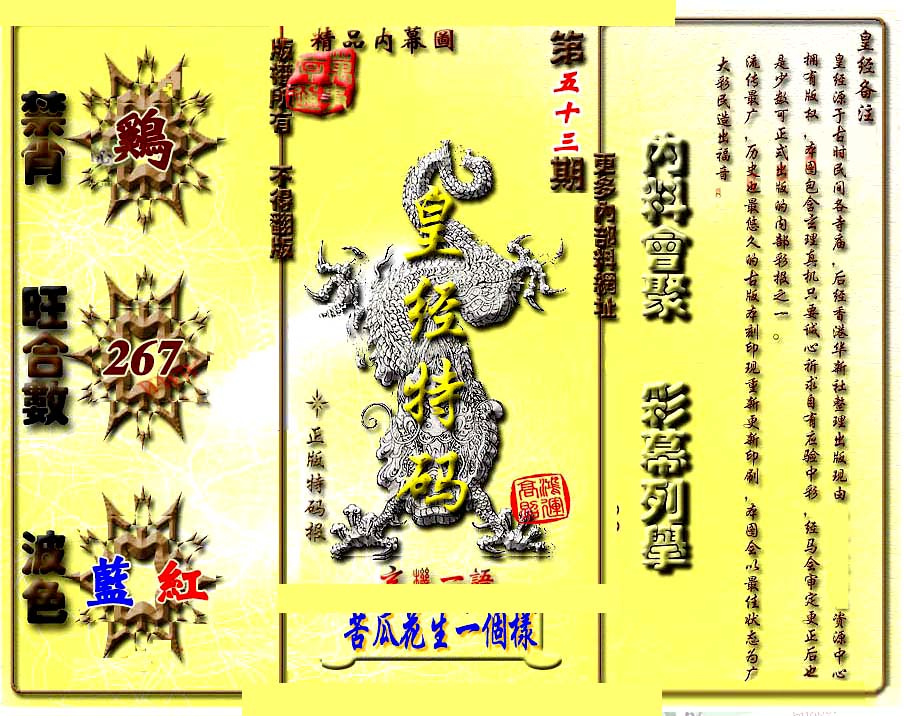 皇经备注
皇经源于古时民间各寺庙，后经香港华新社整理出版现由
资源中心
拥有版权，本图包含玄理真机只要诚心祈求自有应验中彩，经马会审定更正后也
是少数可正式出版的内部彩报之一。
流传最广，历史也最悠久的古版本刻印现重新更新印刷，本图会以最佳状态为广
大彩民造出福音
內料會聚
彩幕列舉
更多內部料網址
第五十三期
精品内幕圖
皇经特码
正版特码报
鴻運
高照
玄機一語
苦瓜花生一個樣
版權所有 不得翻版
禁肖
鷄
旺合數
267
波色
藍 紅